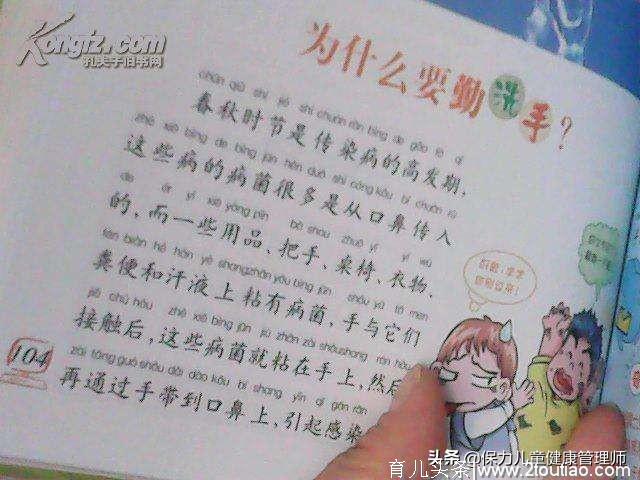 Kongfz.com
孔夫子旧书网
为什么要勤洗手？
chūn qiū shí jié shì chuán rǎn bìng de gāo fā qī
春秋时节是传染病的高发期，
zhè xiē bìng de bìng jūn hěn duō shì cóng kǒu bí chuán rù
这些病的病菌很多是从口鼻传入
de ér yì xiē yòng pǐn bǎ shǒu zhuō yǐ yī wù
的，而一些用品、把手、桌椅、衣物、
fèn biàn hé hàn yè shang zhān yǒu bìng jūn shǒu yǔ tā men
粪便和汗液上粘有病菌，手与它们
jiē chù hòu zhè xiē bìng jūn jiù zhān zài shǒu shang rán hòu
接触后，这些病菌就粘在手上，然后
zài tōng guò shǒu dài dào kǒu bí shang yǐn qǐ gǎn rǎn
再通过手带到口鼻上，引起感染
104
头条@保力儿童健康管理师
育儿头条 www.2toutiao.com